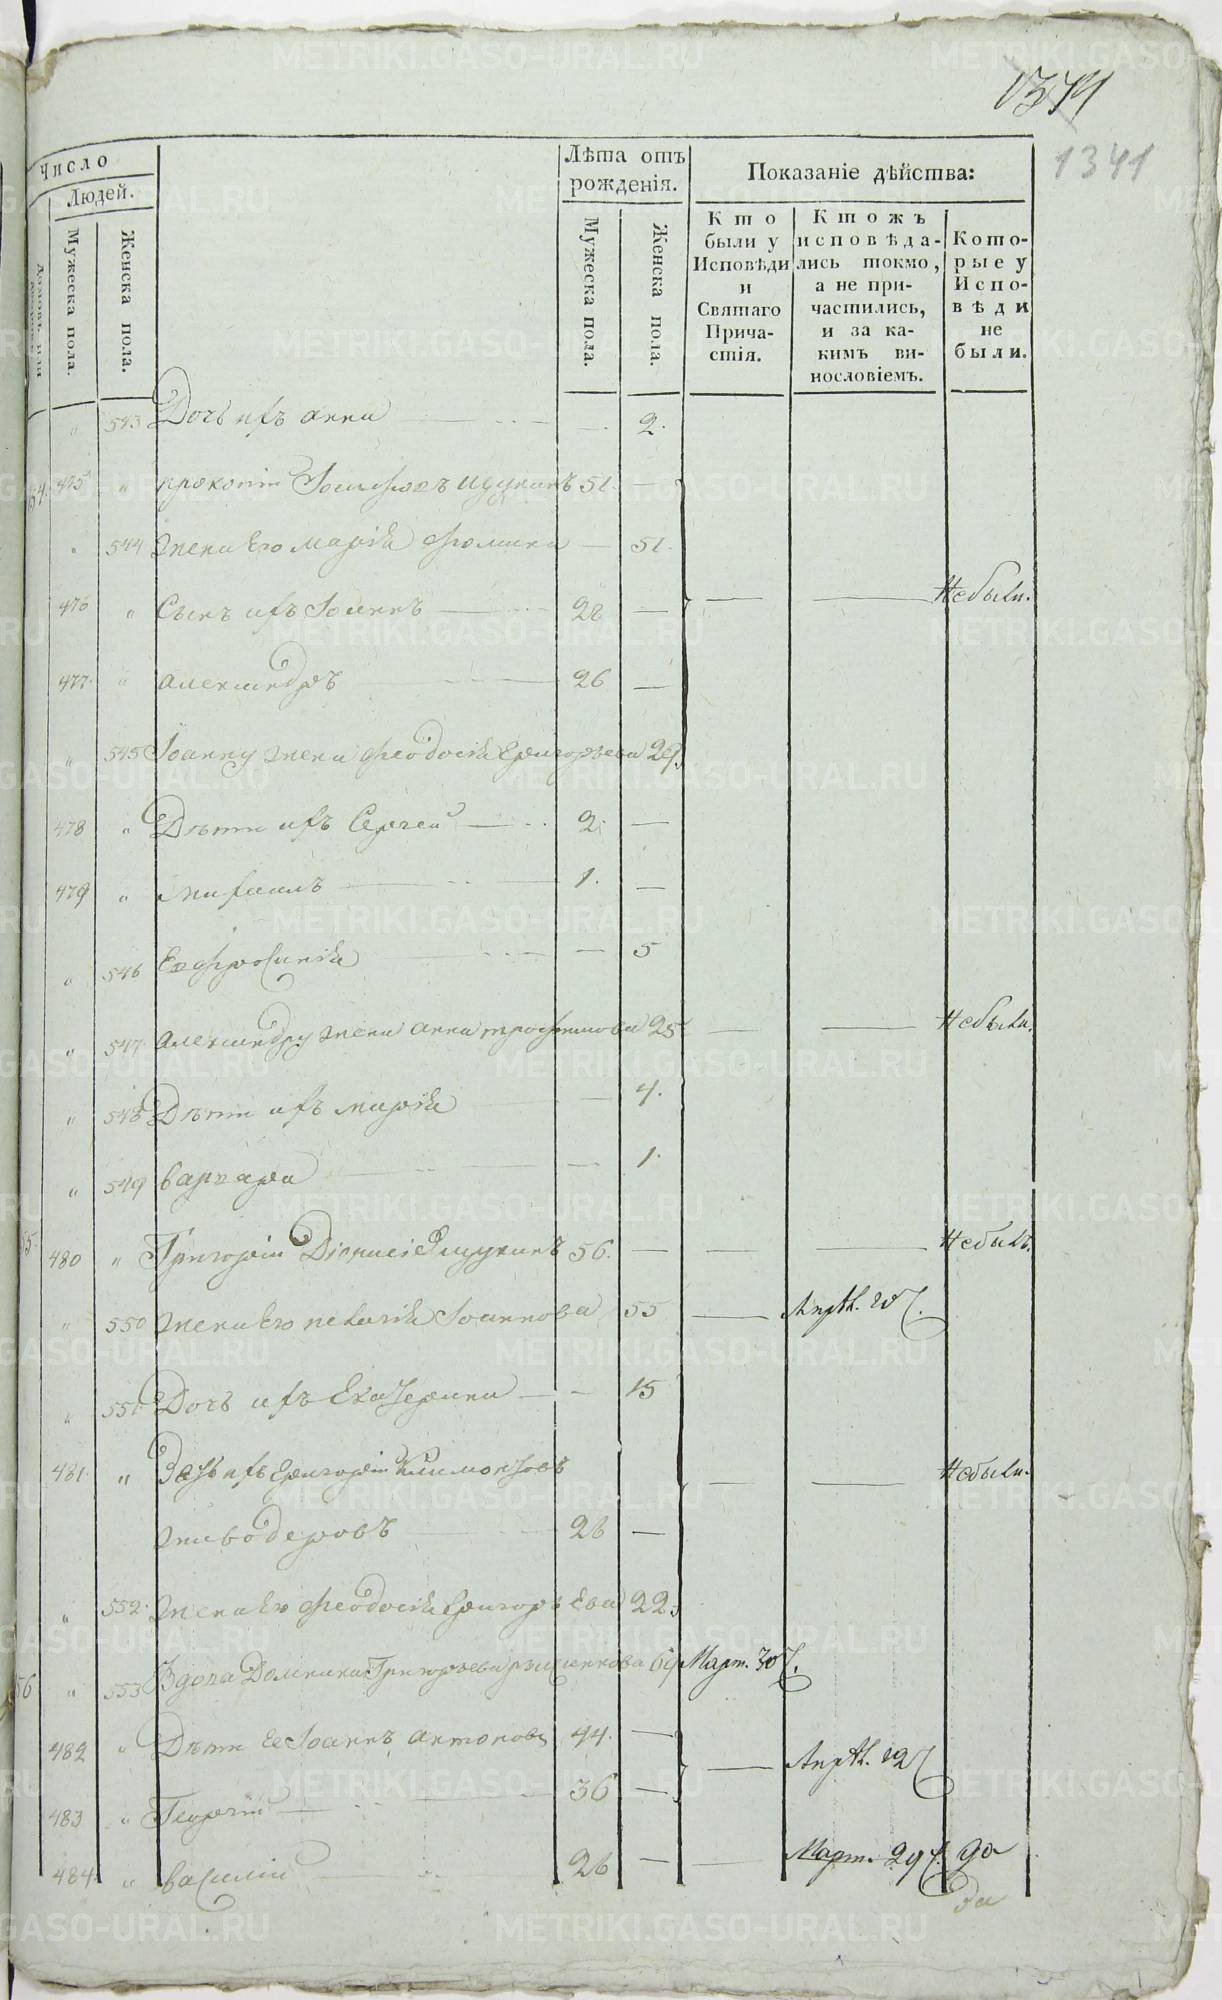 1341
Число
Людей.
Мужеска пола.
Женска пола.
Лѣта отъ рожденія.
Мужеска пола.
Женска пола.
Показаніе дѣйства:
Кто были у Исповѣди и Святаго Причастія.
Ктожъ исповѣдались токмо, а не причастились, и за какимъ винословіемъ.
Которые у Исповѣди не были.
" 543 Дочь ихъ Анна — 2.
54. 475 " Прокопій Іосифовъ Щукинъ 51. —
" 544 Жена Его Марія Фомина — 51.
476 " Сынъ ихъ Іоаннъ 28 — Небыли.
477. " Александръ 26 —
" 545 Іоанну жена Феодосія Григорьева 29.
478 " Дѣти ихъ Сергей 2. —
479 " Михаилъ 1. —
" 546 Евфросинія — 5
" 547 Александру жена Анна Трофимова 25 Небыли.
" 548 Дѣти ихъ Марія — 4.
" 549 Варвара — 1.
55. 480 " Григорій Діонисіе Щукинъ 56. — Небылъ.
" 550 Жена Его Пелагія Іоаннова 55 Апрѣл. 20
" 551 Дочь ихъ Екатерина — 15
481. " Зять ихъ Григорій Климонтовъ Небыли.
Живодеровъ 26 —
" 552. Жена Его Феодосія Григорьева 22.
56 " 553 Вдова Домника Григорьева 69 Март. 30
482 " Дѣти Ее Іоаннъ Антоновъ 44. — Апрѣл. 12
483 " Георгій 36 —
484. " Василій 26 — Март. 29 да
да